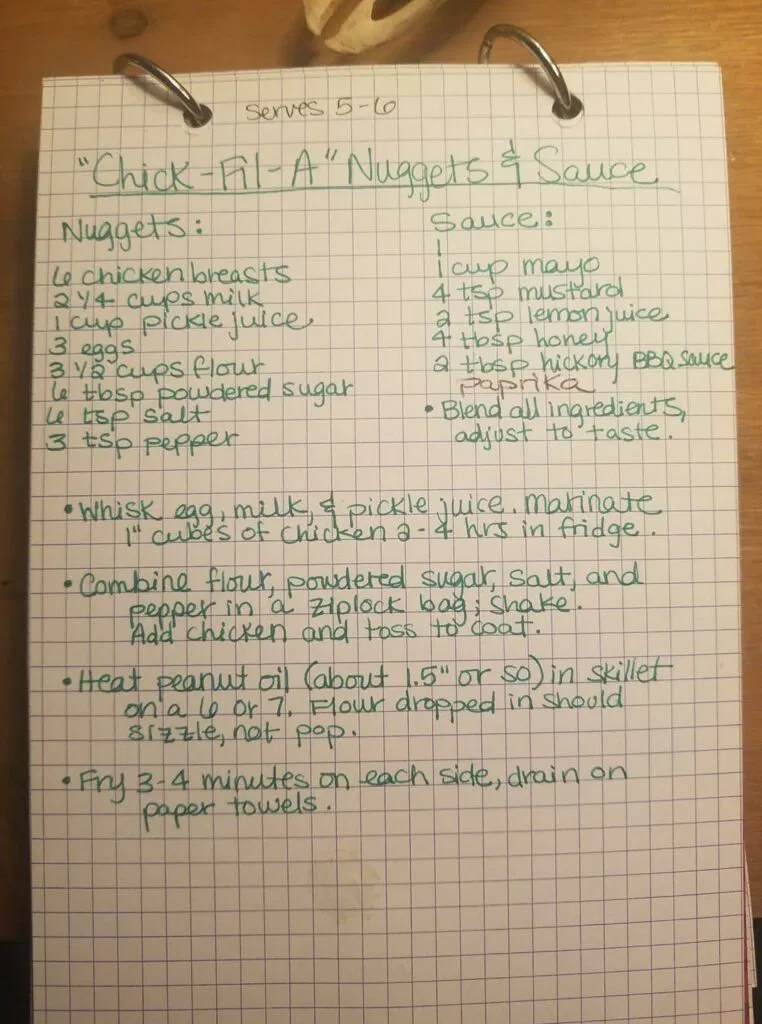 Serves 5-6
"Chick-Fil-A" Nuggets & Sauce
Nuggets:
6 chicken breasts
2 1/4 cups milk
1 cup pickle juice
3 eggs
3 1/2 cups flour
6 tbsp powdered sugar
6 tsp salt
3 tsp pepper
Sauce:
1
1 cup mayo
4 tsp mustard
2 tsp lemon juice
4 tbsp honey
2 tbsp hickory BBQ sauce
paprika
• Blend all ingredients,
adjust to taste.
• Whisk egg, milk, & pickle juice. Marinate
1" cubes of chicken 2-4 hrs in fridge.
• Combine flour, powdered sugar, salt, and
pepper in a ziplock bag; shake.
Add chicken and toss to coat.
• Heat peanut oil (about 1.5" or so) in skillet
on a 6 or 7. Flour dropped in should
sizzle, not pop.
• Fry 3-4 minutes on each side, drain on
paper towels.